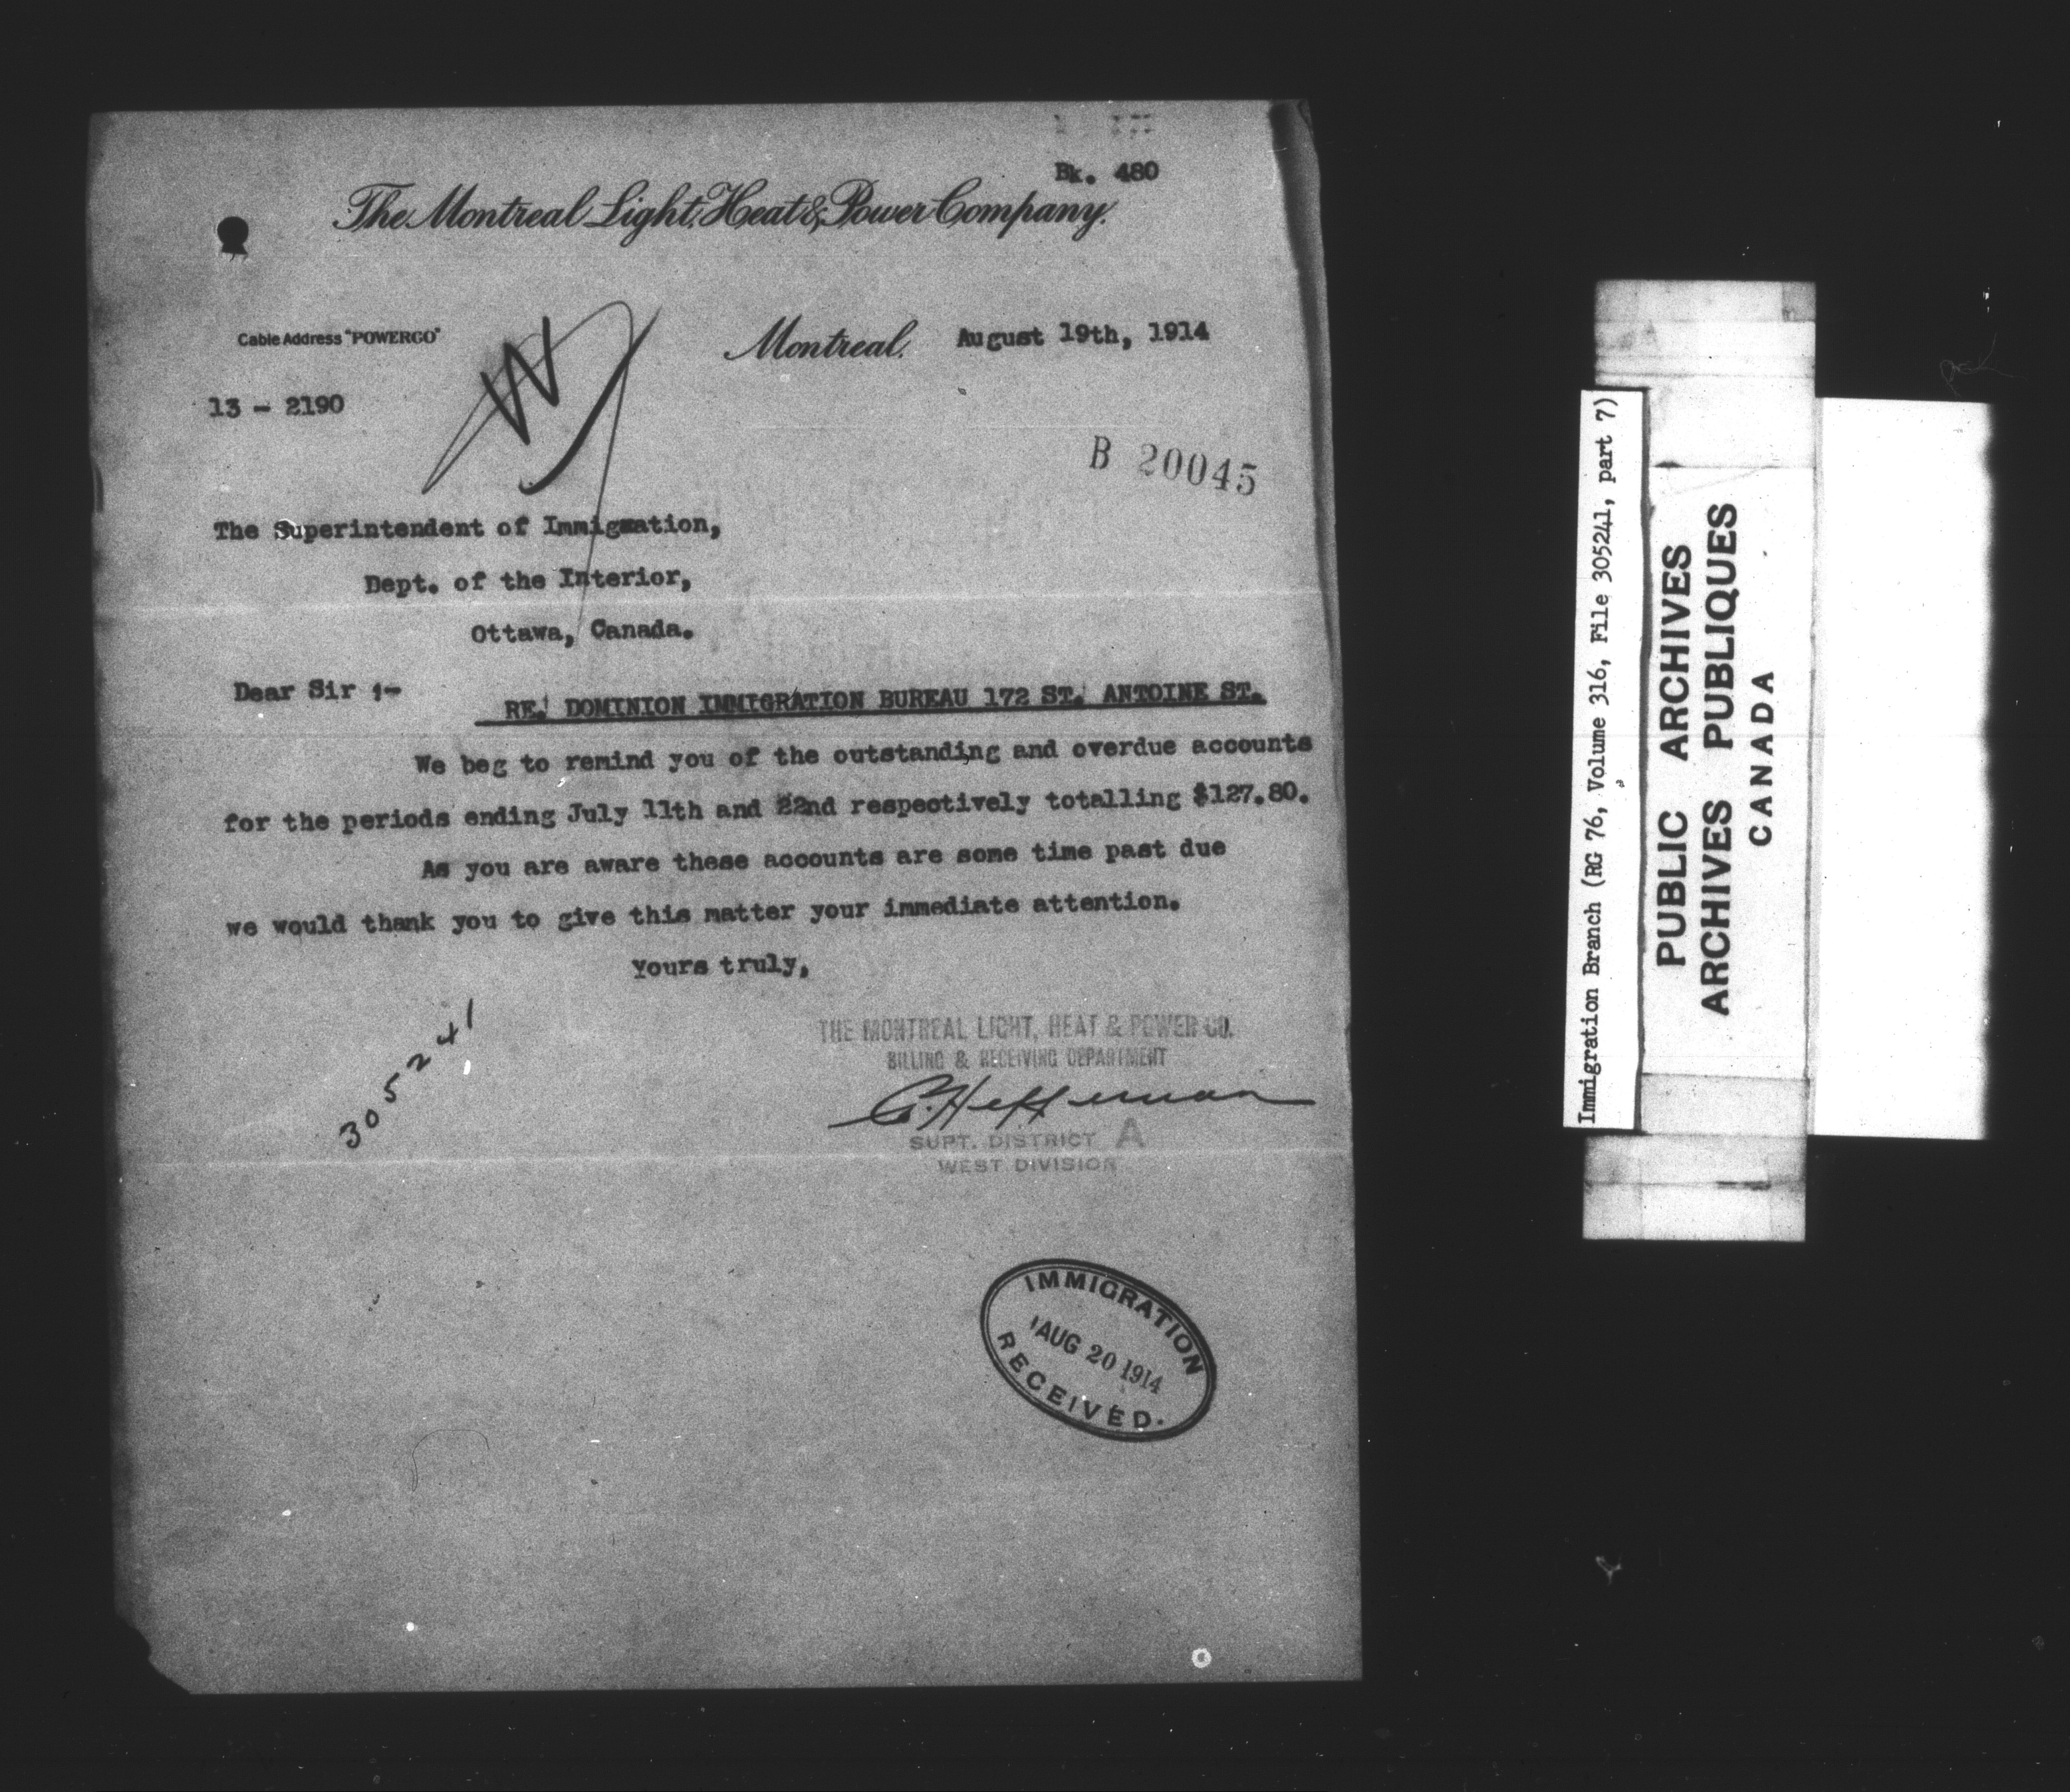 Bk. 480
The Montreal Light, Heat & Power Company.
Cable Address "POWERCO"
Montreal, August 19th, 1914
13 - 2190
W
B 20045
The Superintendent of Immigration,
Dept. of the Interior,
Ottawa, Canada.
Dear Sir :-
RE. DOMINION IMMIGRATION BUREAU 172 ST. ANTOINE ST.
We beg to remind you of the outstanding and overdue accounts
for the periods ending July 11th and 22nd respectively totalling $127.80.
As you are aware these accounts are some time past due
we would thank you to give this matter your immediate attention.
Yours truly,
305241
THE MONTREAL LIGHT, HEAT & POWER CO.
BILLING & RECEIVING DEPARTMENT
C. Heffernan
SUPT. DISTRICT A
WEST DIVISION
IMMIGRATION
AUG 20 1914
RECEIVED.
Immigration Branch (RG 76, Volume 316, File 305241, part 7)
PUBLIC ARCHIVES
ARCHIVES PUBLIQUES
CANADA